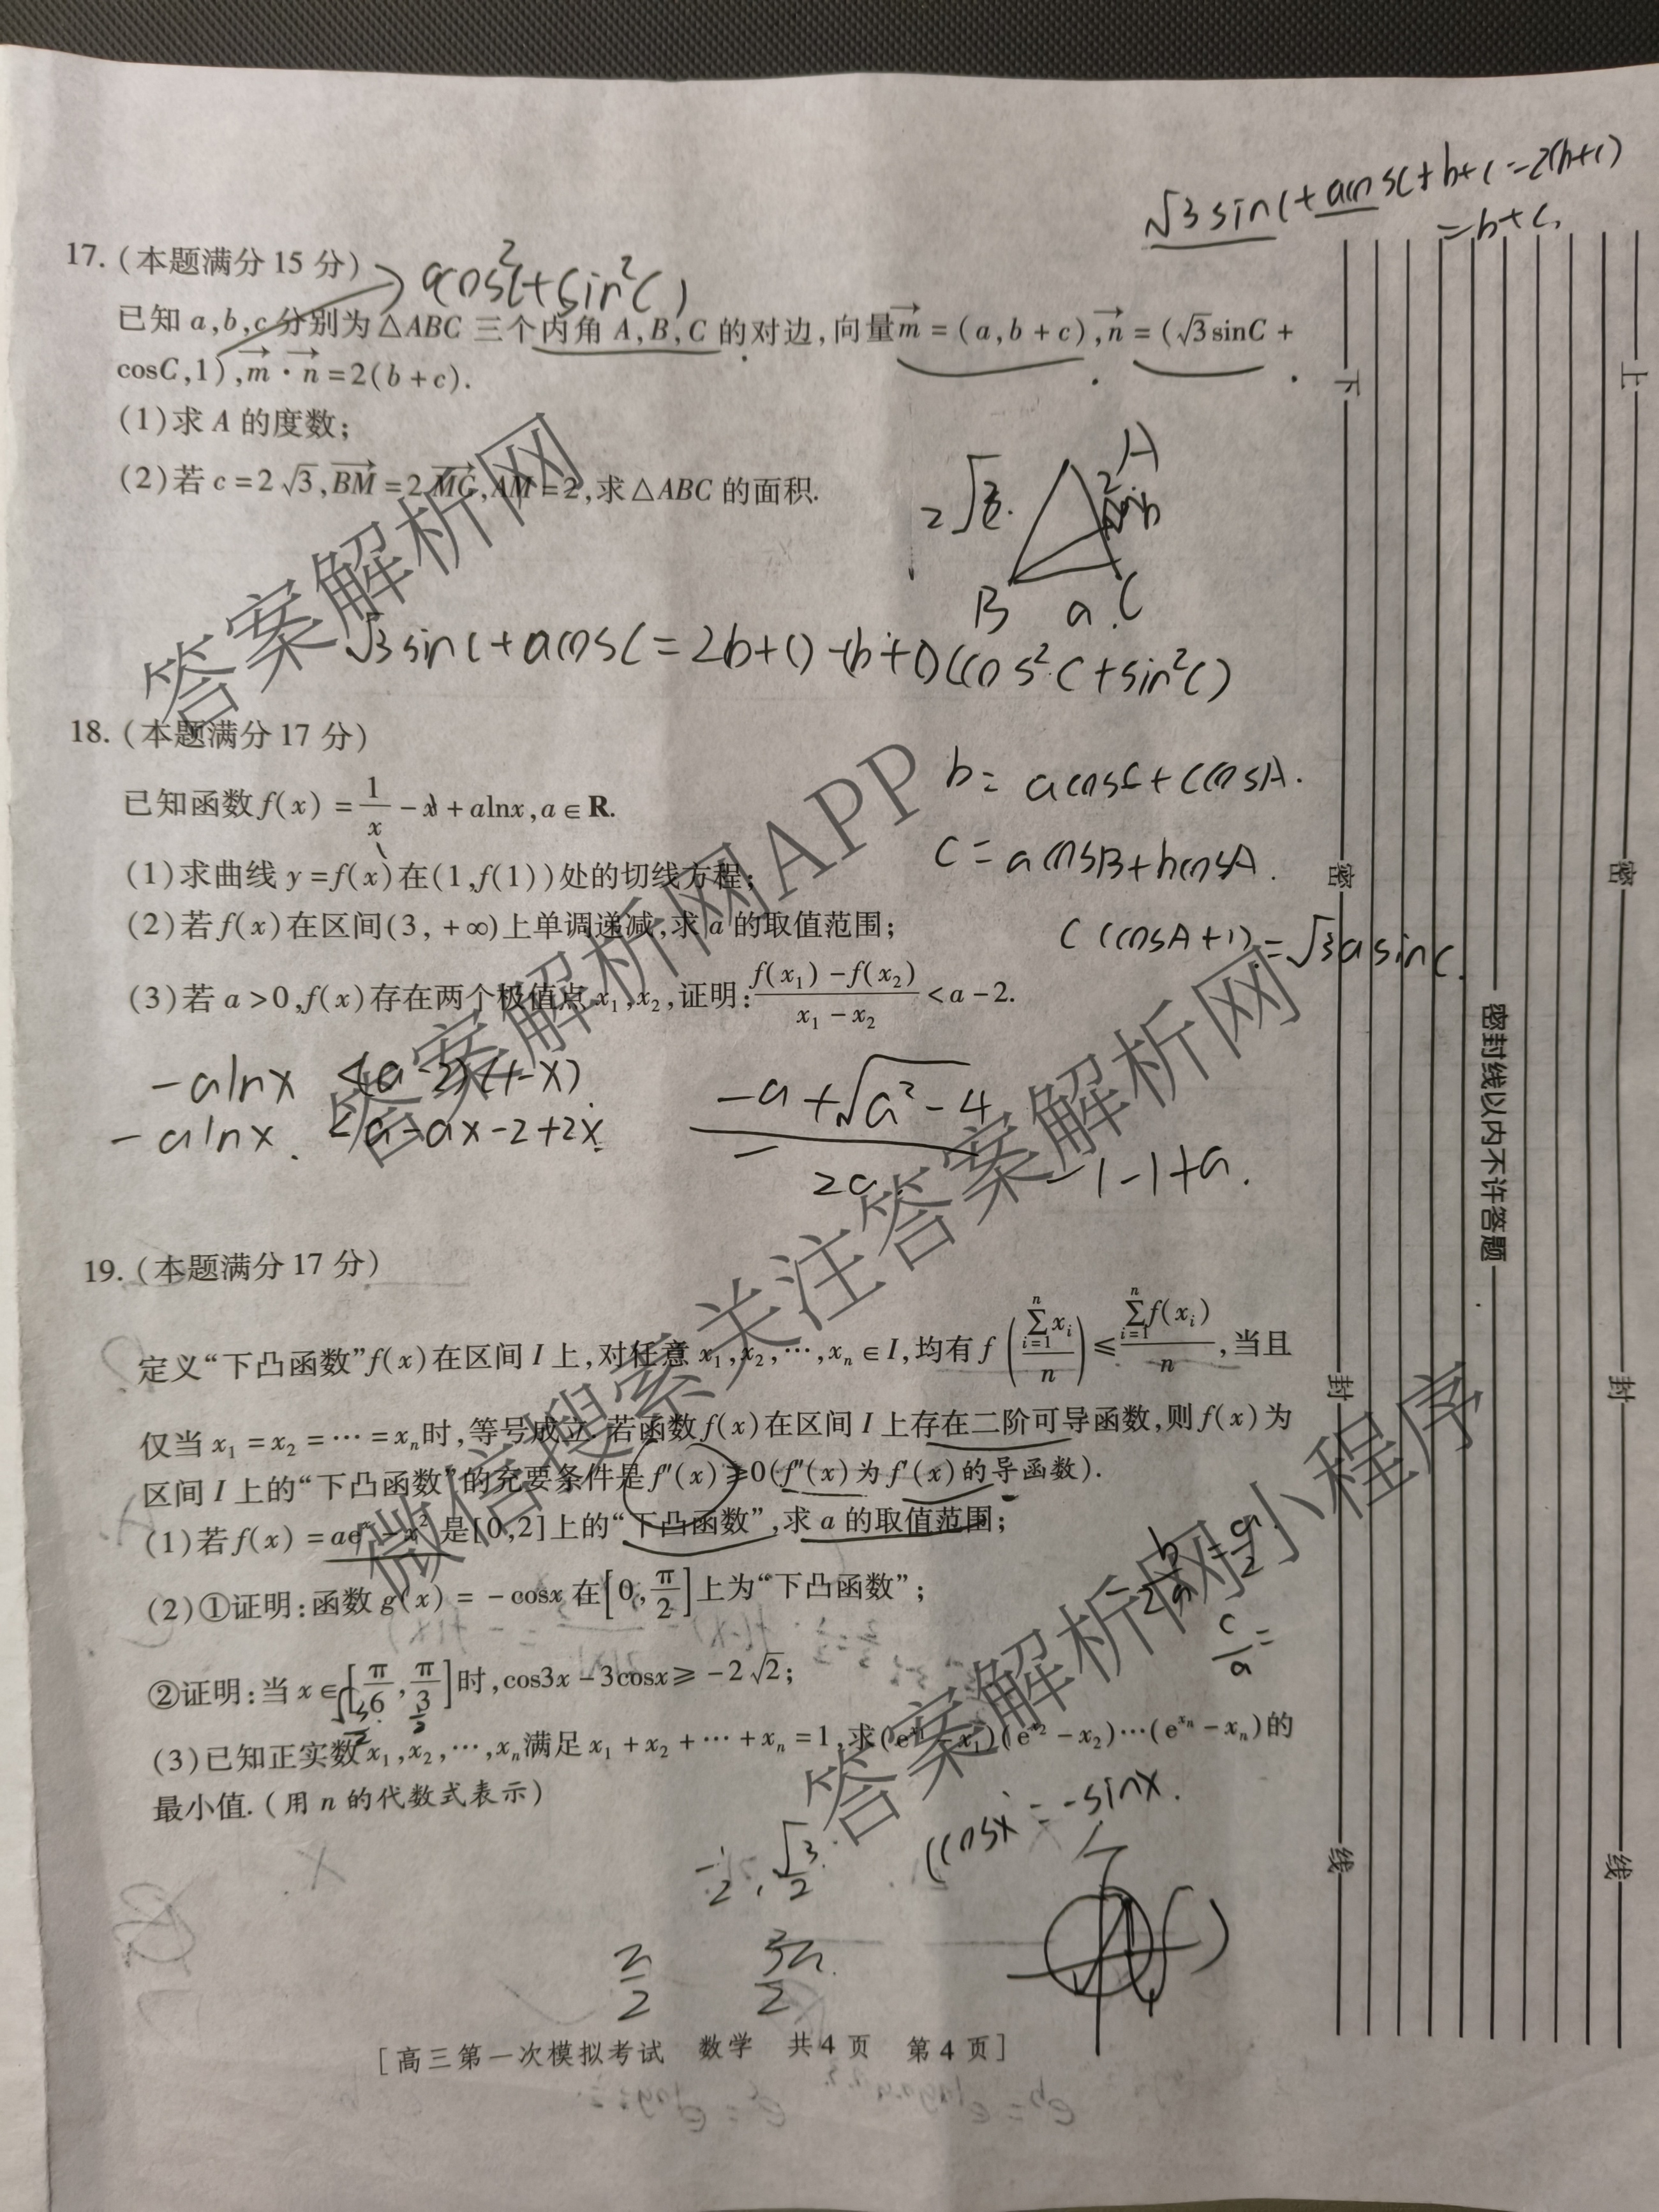 √3sinC+acosC+b+c=2(b+c)
=b+c.
17.(本题满分15分)
acos²C+sin²C)
已知a,b,c分别为△ABC三个内角A,B,C的对边,向量m=(a,b+c),n=(√3sinC+
cosC,1),m·n=2(b+c).
(1)求A的度数;
(2)若c=2√3,BM=2MC,AM=2,求△ABC的面积.
A
2√3.
B a C
√3sinC+acosC=2b+c)-(b+c)(cos²C+sin²C)
18.(本题满分17分)
已知函数f(x)=1/x-x+alnx,a∈R.
b=acosC+ccosA.
(1)求曲线y=f(x)在(1,f(1))处的切线方程;
c=acosB+bcosA.
(2)若f(x)在区间(3,+∞)上单调递减,求a的取值范围;
c(cosA+1)=√3asinC.
(3)若a>0,f(x)存在两个极值点x₁,x₂,证明:(f(x₁)-f(x₂))/(x₁-x₂)<a-2.
-alnx <(a-2)(1-x)
-alnx. <a-ax-2+2x
(-a+√(a²-4))/2a
-1-1+a.
19.(本题满分17分)
定义“下凸函数”f(x)在区间I上,对任意x₁,x₂,…,xₙ∈I,均有f((∑ⁿᵢ₌₁xᵢ)/n)≤(∑ⁿᵢ₌₁f(xᵢ))/n,当且
仅当x₁=x₂=…=xₙ时,等号成立.若函数f(x)在区间I上存在二阶可导函数,则f(x)为
区间I上的“下凸函数”的充要条件是f″(x)≥0(f″(x)为f′(x)的导函数).
(1)若f(x)=aeˣ-x²是[0,2]上的“下凸函数”,求a的取值范围;
(2)①证明:函数g(x)=-cosx在[0,π/2]上为“下凸函数”;
c/a=
②证明:当x∈[π/6,π/3]时,cos3x-3cosx≥-2√2;
(3)已知正实数x₁,x₂,…,xₙ满足x₁+x₂+…+xₙ=1,求(eˣ¹-x₁)(eˣ²-x₂)…(eˣⁿ-xₙ)的
最小值.(用n的代数式表示)
(cosx=-sinx.
1/2,√3/2
π/2 3π/2
[高三第一次模拟考试 数学 共4页 第4页]
下 密 封 线
密封线以内不许答题
上 密 封 线
答案解析网
答案解析网APP
微信搜索关注答案解析网
答案解析网小程序